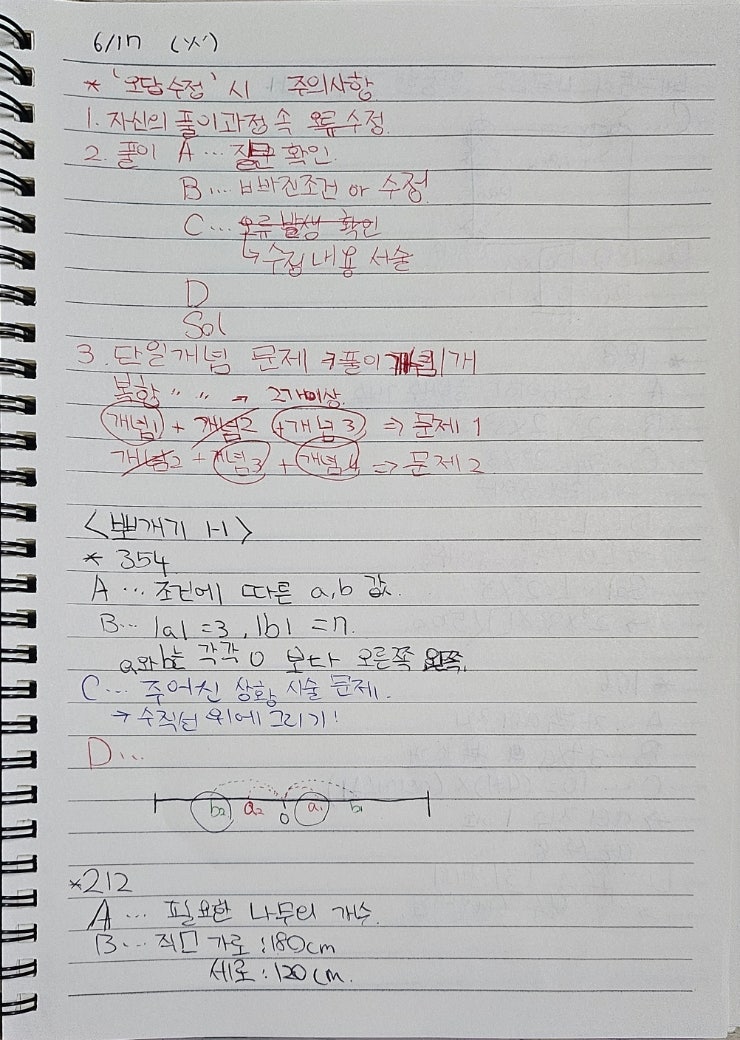 6/17 (火)
* '오답수정' 시 주의사항
1. 자신의 풀이과정 속 오류 수정.
2. 풀이 A … 질문 확인.
B … 빠진조건 or 수정.
C … 오류 발생 확인
↳ 수정 내용 서술
D
Sol
3. 단일개념 문제 → 풀이 개념 1개
복합 〃 〃 → 2개이상.
개념1 + 개념2 + 개념3 ⇒ 문제 1
개념2 + 개념3 + 개념4 ⇒ 문제 2
<뽀개기 1-1>
* 354
A … 조건에 따른 a, b 값.
B … |a| = 3, |b| = 7.
a와 b는 각각 0 보다 오른쪽 왼쪽.
C … 주어진 상황 서술 문제.
→ 수직선 위에 그리기!
D …
b₂ a₂ 0 a₁ b₁
*212
A … 필요한 나무의 개수.
B … 직□ 가로 : 180cm
세로 : 120cm.